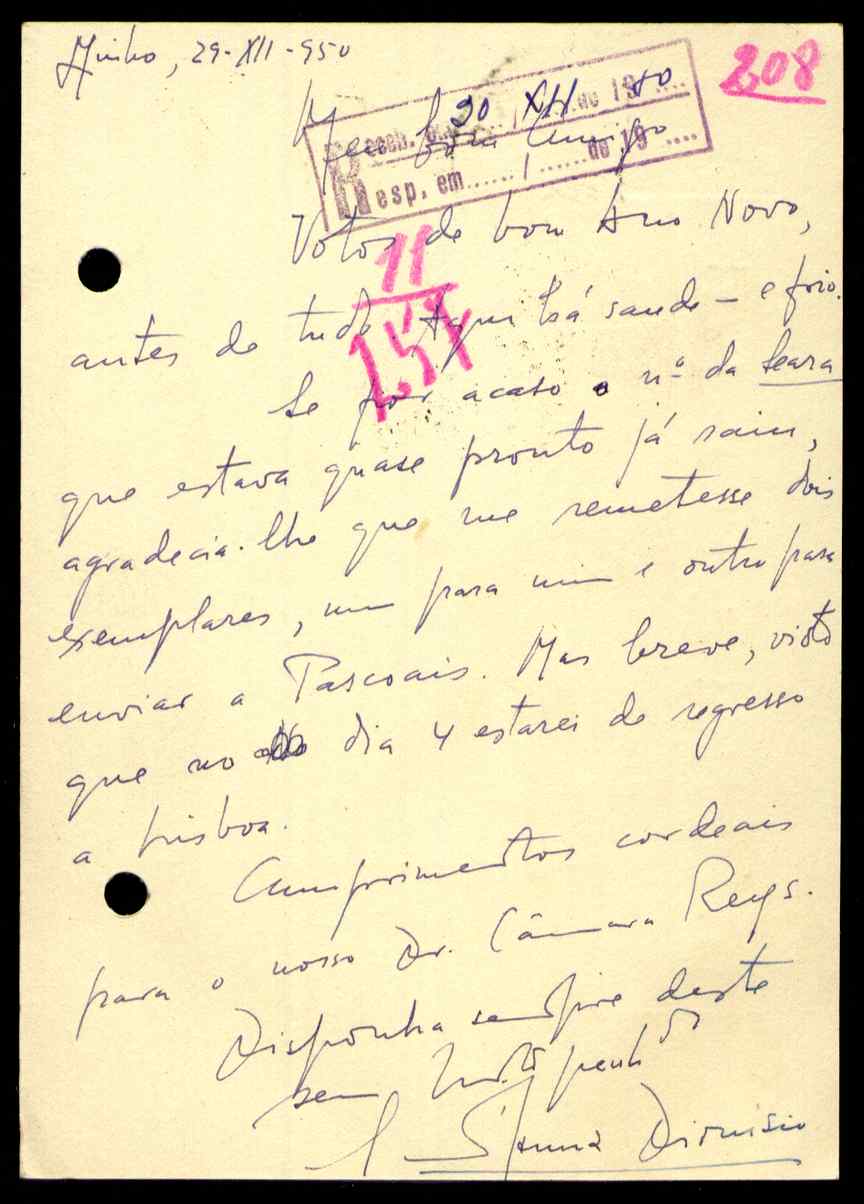 Minho, 29-XII-950
208
Receb. em 30 / XII de 1950
Resp. em ...... / ...... de 19 ....
Meu bom Amigo
Votos de bom Ano Novo,
antes de tudo. Aqui há saude — e frio.
11
Se por acaso o nº da Seara
que estava quase pronto já saiu,
agradecia-lhe que me remetesse dois
exemplares, um para mim e outro para
enviar a Pascoais. Mas breve, visto
que no dia 4 estarei de regresso
a Lisboa.
Cumprimentos cordeais
para o nosso Dr. Câmara Reys.
Disponha sempre deste
seu
Sant'Anna Dionisio